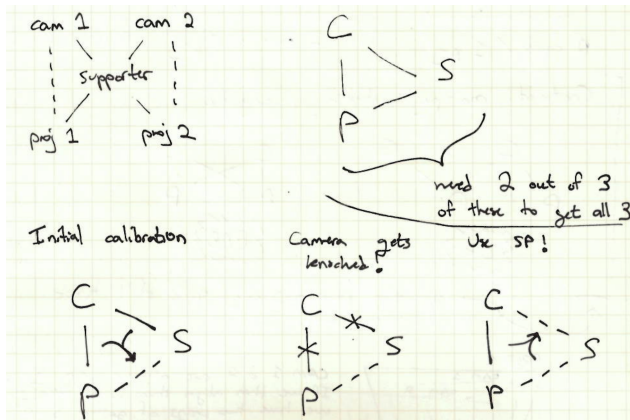 cam 1
cam 2
supporter
proj 1
proj 2
C
S
P
need 2 out of 3
of these to get all 3
Initial calibration
Camera gets
knocked!
Use SP!
C
S
P
C
S
P
C
S
P